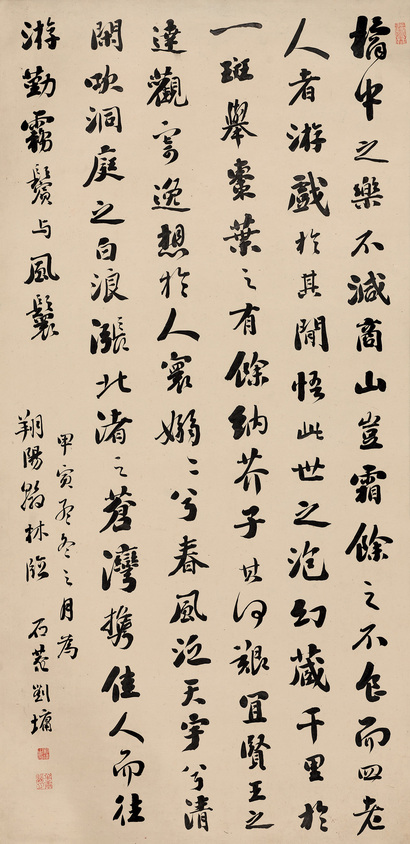 橘中之樂不減商山豈霜餘之不食而四老
人者游戲於其間悟此世之泡幻藏千里於
一斑舉棗葉之有餘納芥子其何艱宜賢王之
達觀寄逸想於人寰嫋〻兮春風泛天宇兮清
閑吹洞庭之白浪漲北渚之蒼灣攜佳人而往
游勤霧鬢与風鬟
甲寅孟冬之月為
翔陽林臨 石菴劉墉